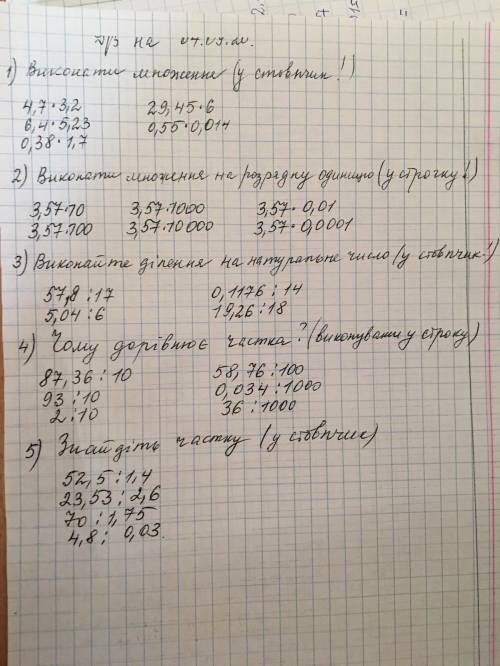 Д/з на
1) Виконати множення (у стовпчик!)
4,7·3,2 29,45·6
6,4·5,23 0,55·0,014
0,38·1,7
2) Виконати множення на розрядну одиницю (у строчку!)
3,57·10 3,57·1000 3,57·0,01
3,57·100 3,57·10000 3,57·0,0001
3) Виконайте ділення на натуральне число (у стовпчик!)
57,8:17 0,1176:14
5,04:6 19,26:18
4) Чому дорівнює частка? (виконувати у строку)
87,36:10 58,76:100
93:10 0,034:1000
2:10 36:1000
5) Знайдіть частку (у стовпчик)
52,5:1,4
23,53:2,6
70:1,75
4,8:0,03.